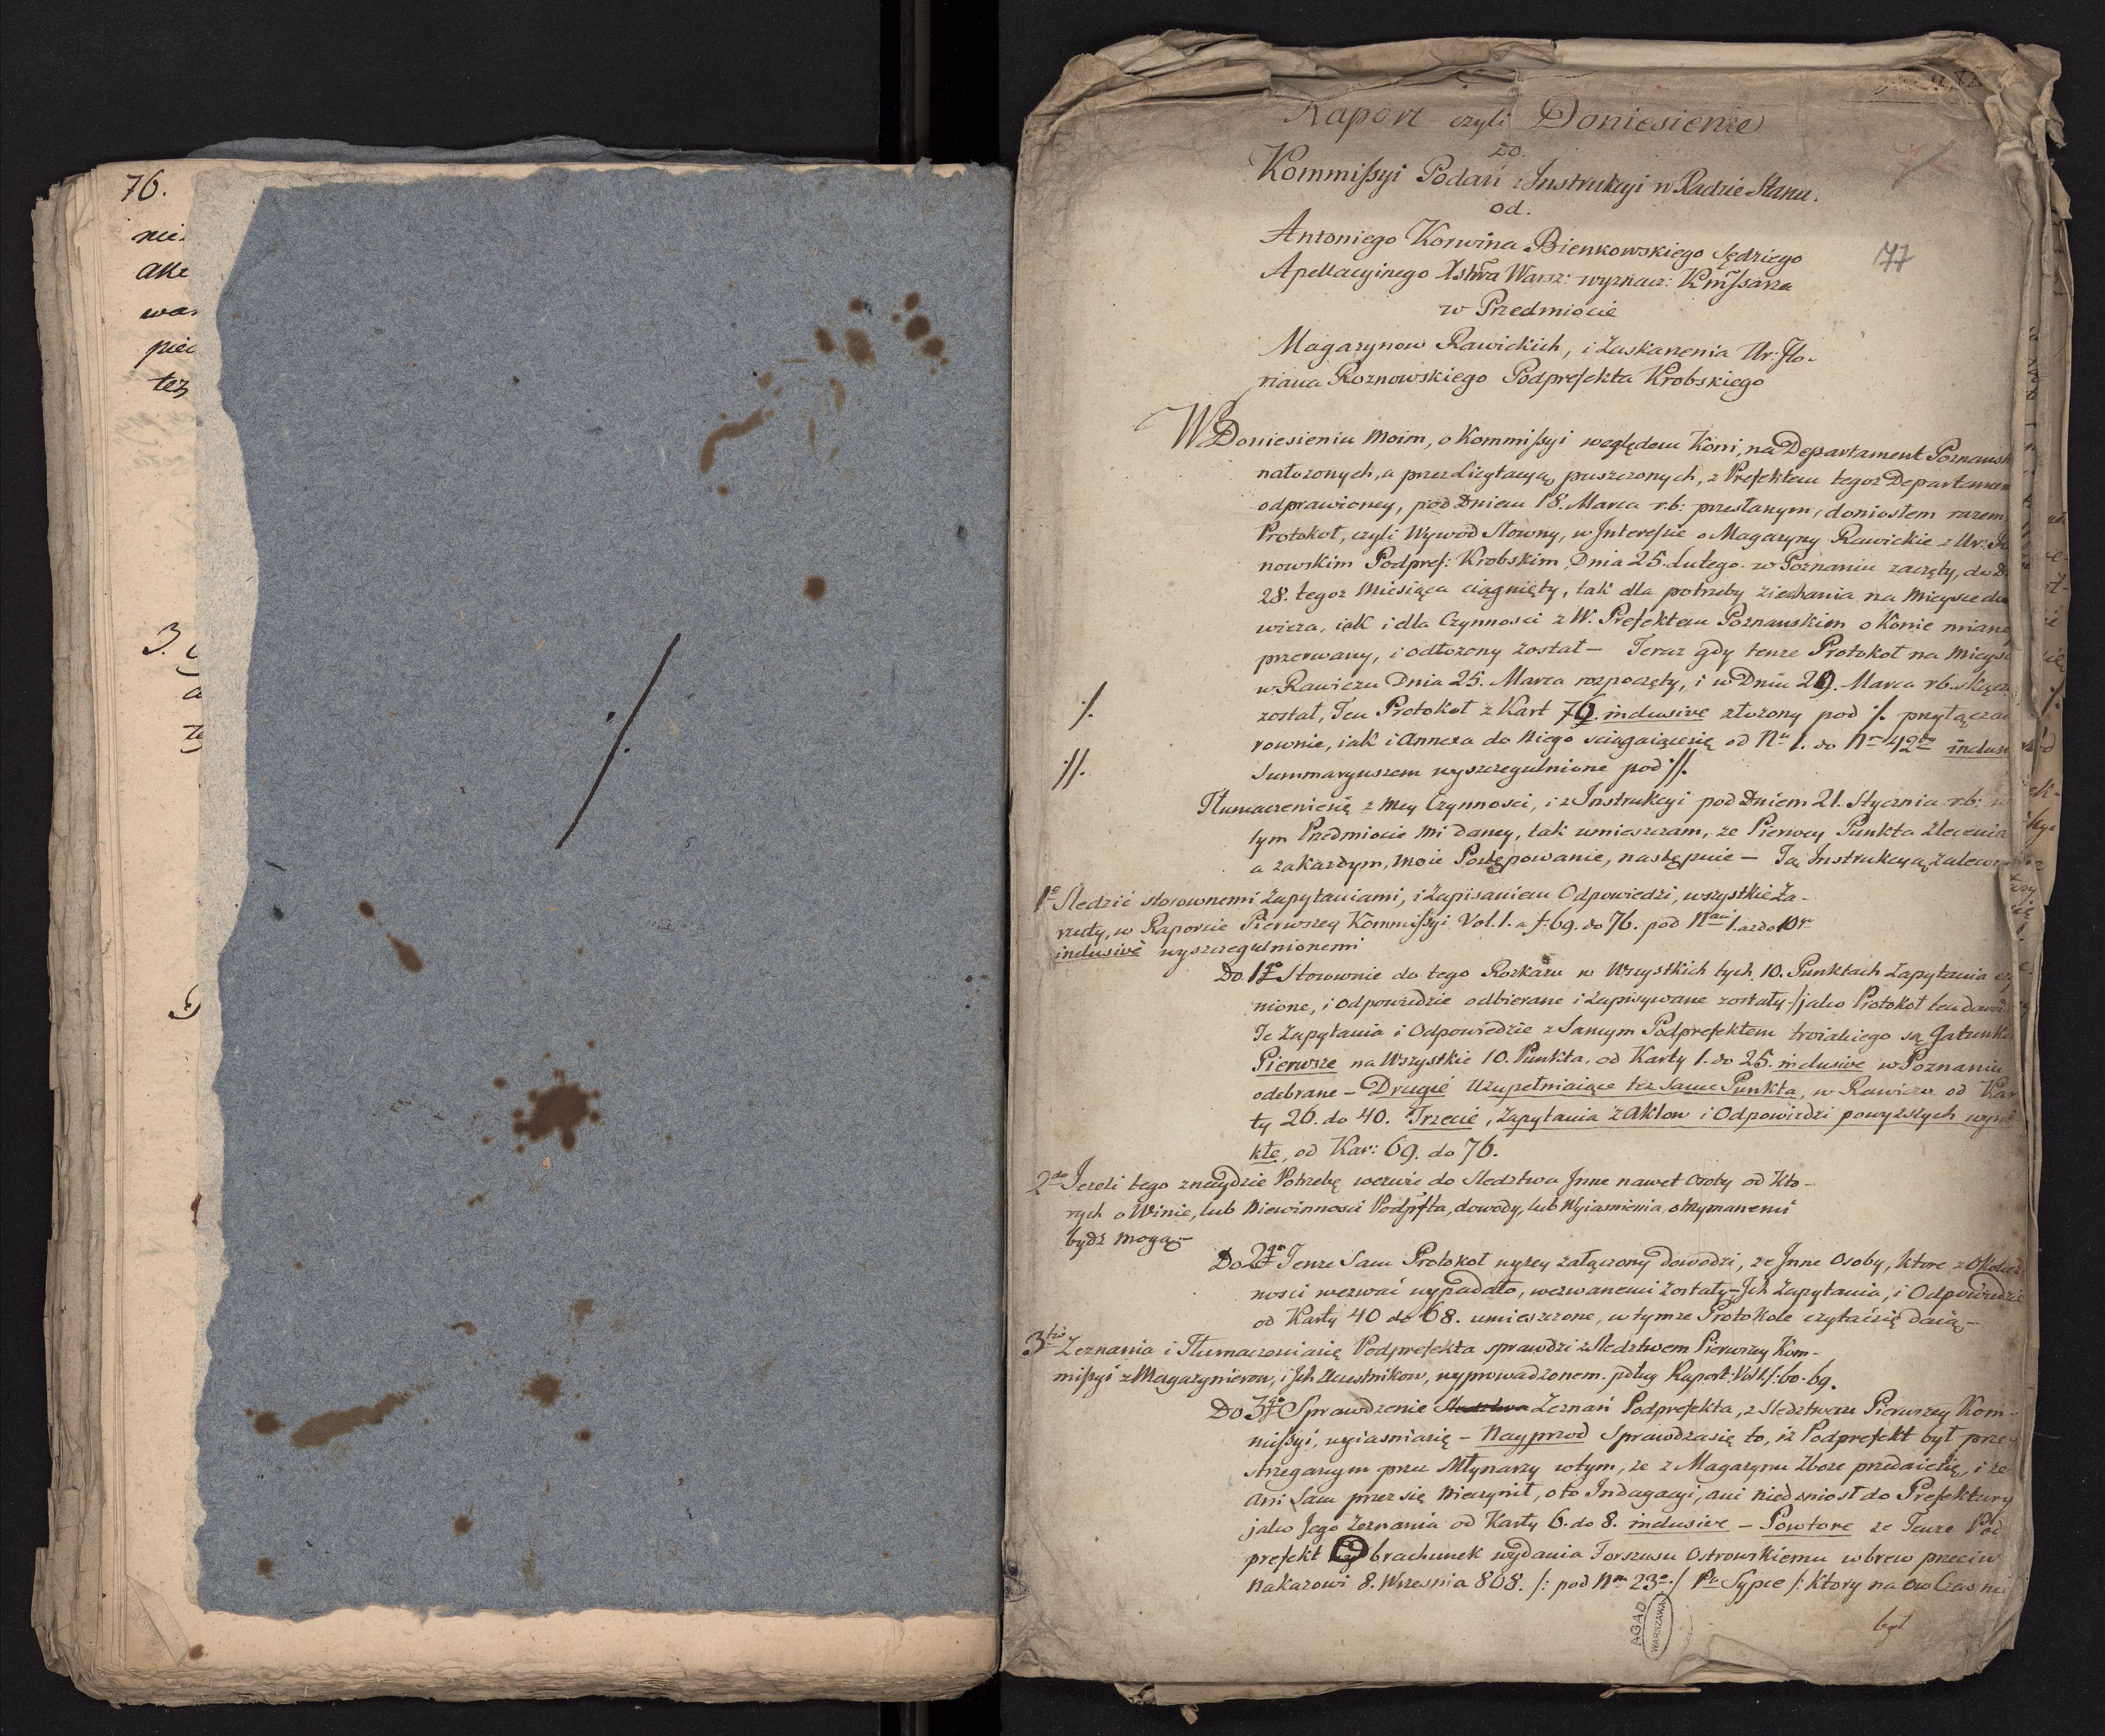 76.
nie
akt
wa
piec
też
3.
a
./.
Raport czyli Doniesienie
Do
Kommissyi Podań i Instrukcyi w Radzie Stanu.
od.
Antoniego Korwina Bienkowskiego Sędziego
Apellacyinego Xstwa Warsz: wyznacz: Kmssarza
77
w Przedmiocie
Magazynow Rawickich, i Zaskarzenia Ur: Flo-
riana Roznowskiego Podprefekta Krobskiego
W Doniesieniu Moim, o Kommissyi względem Koni, na Departament Poznansk
nałozonych, a przez Licytacyą puszczonych, z Prefektem tegoz Departamen
odprawioney, pod Dniem 18. Marca r.b: przesłanym, doniosłem razem,
Protokoł, czyli Wywod Słowny, w Interessie o Magazyny Rawickie z Ur:
nowskim Podpref: Krobskim, Dnia 25. Lutego w Poznaniu zaczęty, do D
28. tegoz Miesiąca ciągnięty, tak dla potrzeby ziechania na Mieysce do
wicza, iak i dla Czynnosci z W. Prefektem Poznanskim o Konie mianey
przerwany, i odłozony został – Teraz gdy tenze Protokoł na Mieysc
w Rawiczu Dnia 25. Marca rozpoczęty, i w Dniu 29. Marca r.b. skącz
./. został, Ten Protokoł z Kart 76. inclusive złozony pod ./. przyłącza
rownie, iak i Annexa do Niego sciągaiącesię od Nru 1. do Nro 42do inclus
.//. Summaryuszem wyszczegulnione pod .//.
Tłumaczeniesię z mey Czynnosci, i z Instrukcyi pod Dniem 21. Stycznia r.b: w
tym Przedmiocie Mi daney, tak umieszczam, ze Pierwey Punkta Zlecenia
a zakazdym, moie Postępowanie, następuie – Tą Instrukcyą zalecono
1o Sledzić stosownemi Zapytaniami, i Zapisaniem Odpowiedzi, wszystkie Za-
rzuty, w Raporcie Pierwszey Kommissyi Vol. 1. a f: 69. do 76. pod Nrami 1. az do 10go
inclusive wyszczegulnionemi
Do 1go Stosownie do tego Rozkazu w Wszystkich tych 10. Punktach Zapytania czy
nione, i odpowiedzie odbierane i Zapisywane zostały /: jako Protokoł ten dowod
Te Zapytania i Odpowiedzie z Samym Podprefektem troiakiego są Gatunku
Pierwsze na Wszystkie 10. Punkta, od Karty 1. do 25. inclusive w Poznaniu
odebrane – Drugie Uzupełniaiące tez same Punkta, w Rawiczu od Kar
ty 26. do 40. Trzecie, Zapytania z Aktow i Odpowiedzi powyzszych wyni
kłe, od Kar: 69. do 76.
2do Jezeli tego znaydzie Potrzebę wezwie do Sledztwa Inne nawet Osoby od Kto-
rych o Winie, lub Niewinnosci Podpfta, dowody, lub Wyiasnienia, otrzymanemi
bydz mogą –
Do 2go Tenze Sam Protokoł wyzey załączony dowodzi, ze Inne Osoby, ktore z Okolicz
nosci wezwać wypadało, wezwanemi zostały – Ich Zapytania, i Odpowiedzie
od Karty 40 do 68. umieszczone, w tymze Protokole czytaćsię daią –
3tio Zeznania i Tłumaczeniasię Podprefekta sprawdzi z Sledztwem Pierwszey Kom-
missyi z Magazynierow, i Ich Uczestnikow, wyprowadzonem. podług Raport: Vol 1. f: 60-69.
Do 3go Sprawdzenie Sledztwa Zeznań Podprefekta, z Sledztwem Pierwszey Kom-
missyi, wyiasniasię – Nayprzod Sprawdzasię to, iz Podprefekt był prze
strzeganym przez Młynarzy o tym, ze z Magazynu Zboze przedaiesię, i ze
ani Sam przez się Nieczynił, o to Indagacyi, ani Niedoniosł do Prefektury
jako Jego Zeznania od Karty 6. do 8. inclusive – Powtore ze Tenze Pod
prefekt Obrachunek wydania Forszusu Ostrowskiemu wbrew przeciw
Nakazowi 8. Wrzesnia 808. /: pod Nro 23o :/ Pu Sypce /: Ktory na ow Czas nie
był
AGAD
WARSZAWA